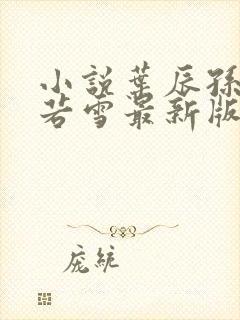 小説葉辰孫
若雪最新版
庞統